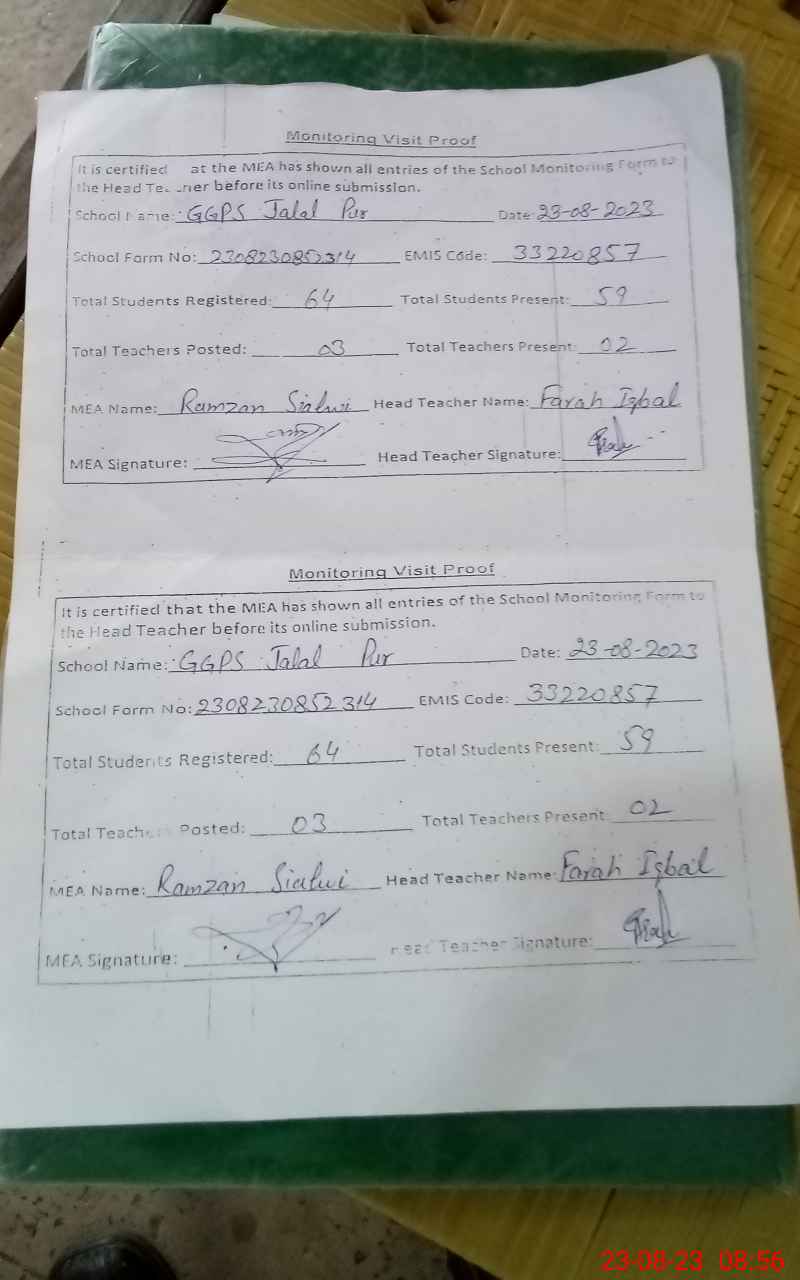 Monitoring Visit Proof
It is certified at the MEA has shown all entries of the School Monitoring Form to
the Head Teacher before its online submission.
School Name: GGPS Jalal Pur Date: 23-08-2023
School Form No: 2308230852314 EMIS Code: 33220857
Total Students Registered: 64 Total Students Present: 59
Total Teachers Posted: 03 Total Teachers Present: 02
MEA Name: Ramzan Sialwi Head Teacher Name: Farah Iqbal
MEA Signature: Head Teacher Signature:
Monitoring Visit Proof
It is certified that the MEA has shown all entries of the School Monitoring Form to
the Head Teacher before its online submission.
School Name: GGPS Jalal Pur Date: 23-08-2023
School Form No: 2308230852314 EMIS Code: 33220857
Total Students Registered: 64 Total Students Present: 59
Total Teachers Posted: 03 Total Teachers Present: 02
MEA Name: Ramzan Sialwi Head Teacher Name: Farah Iqbal
MEA Signature: Head Teacher Signature:
23-08-23 08:56